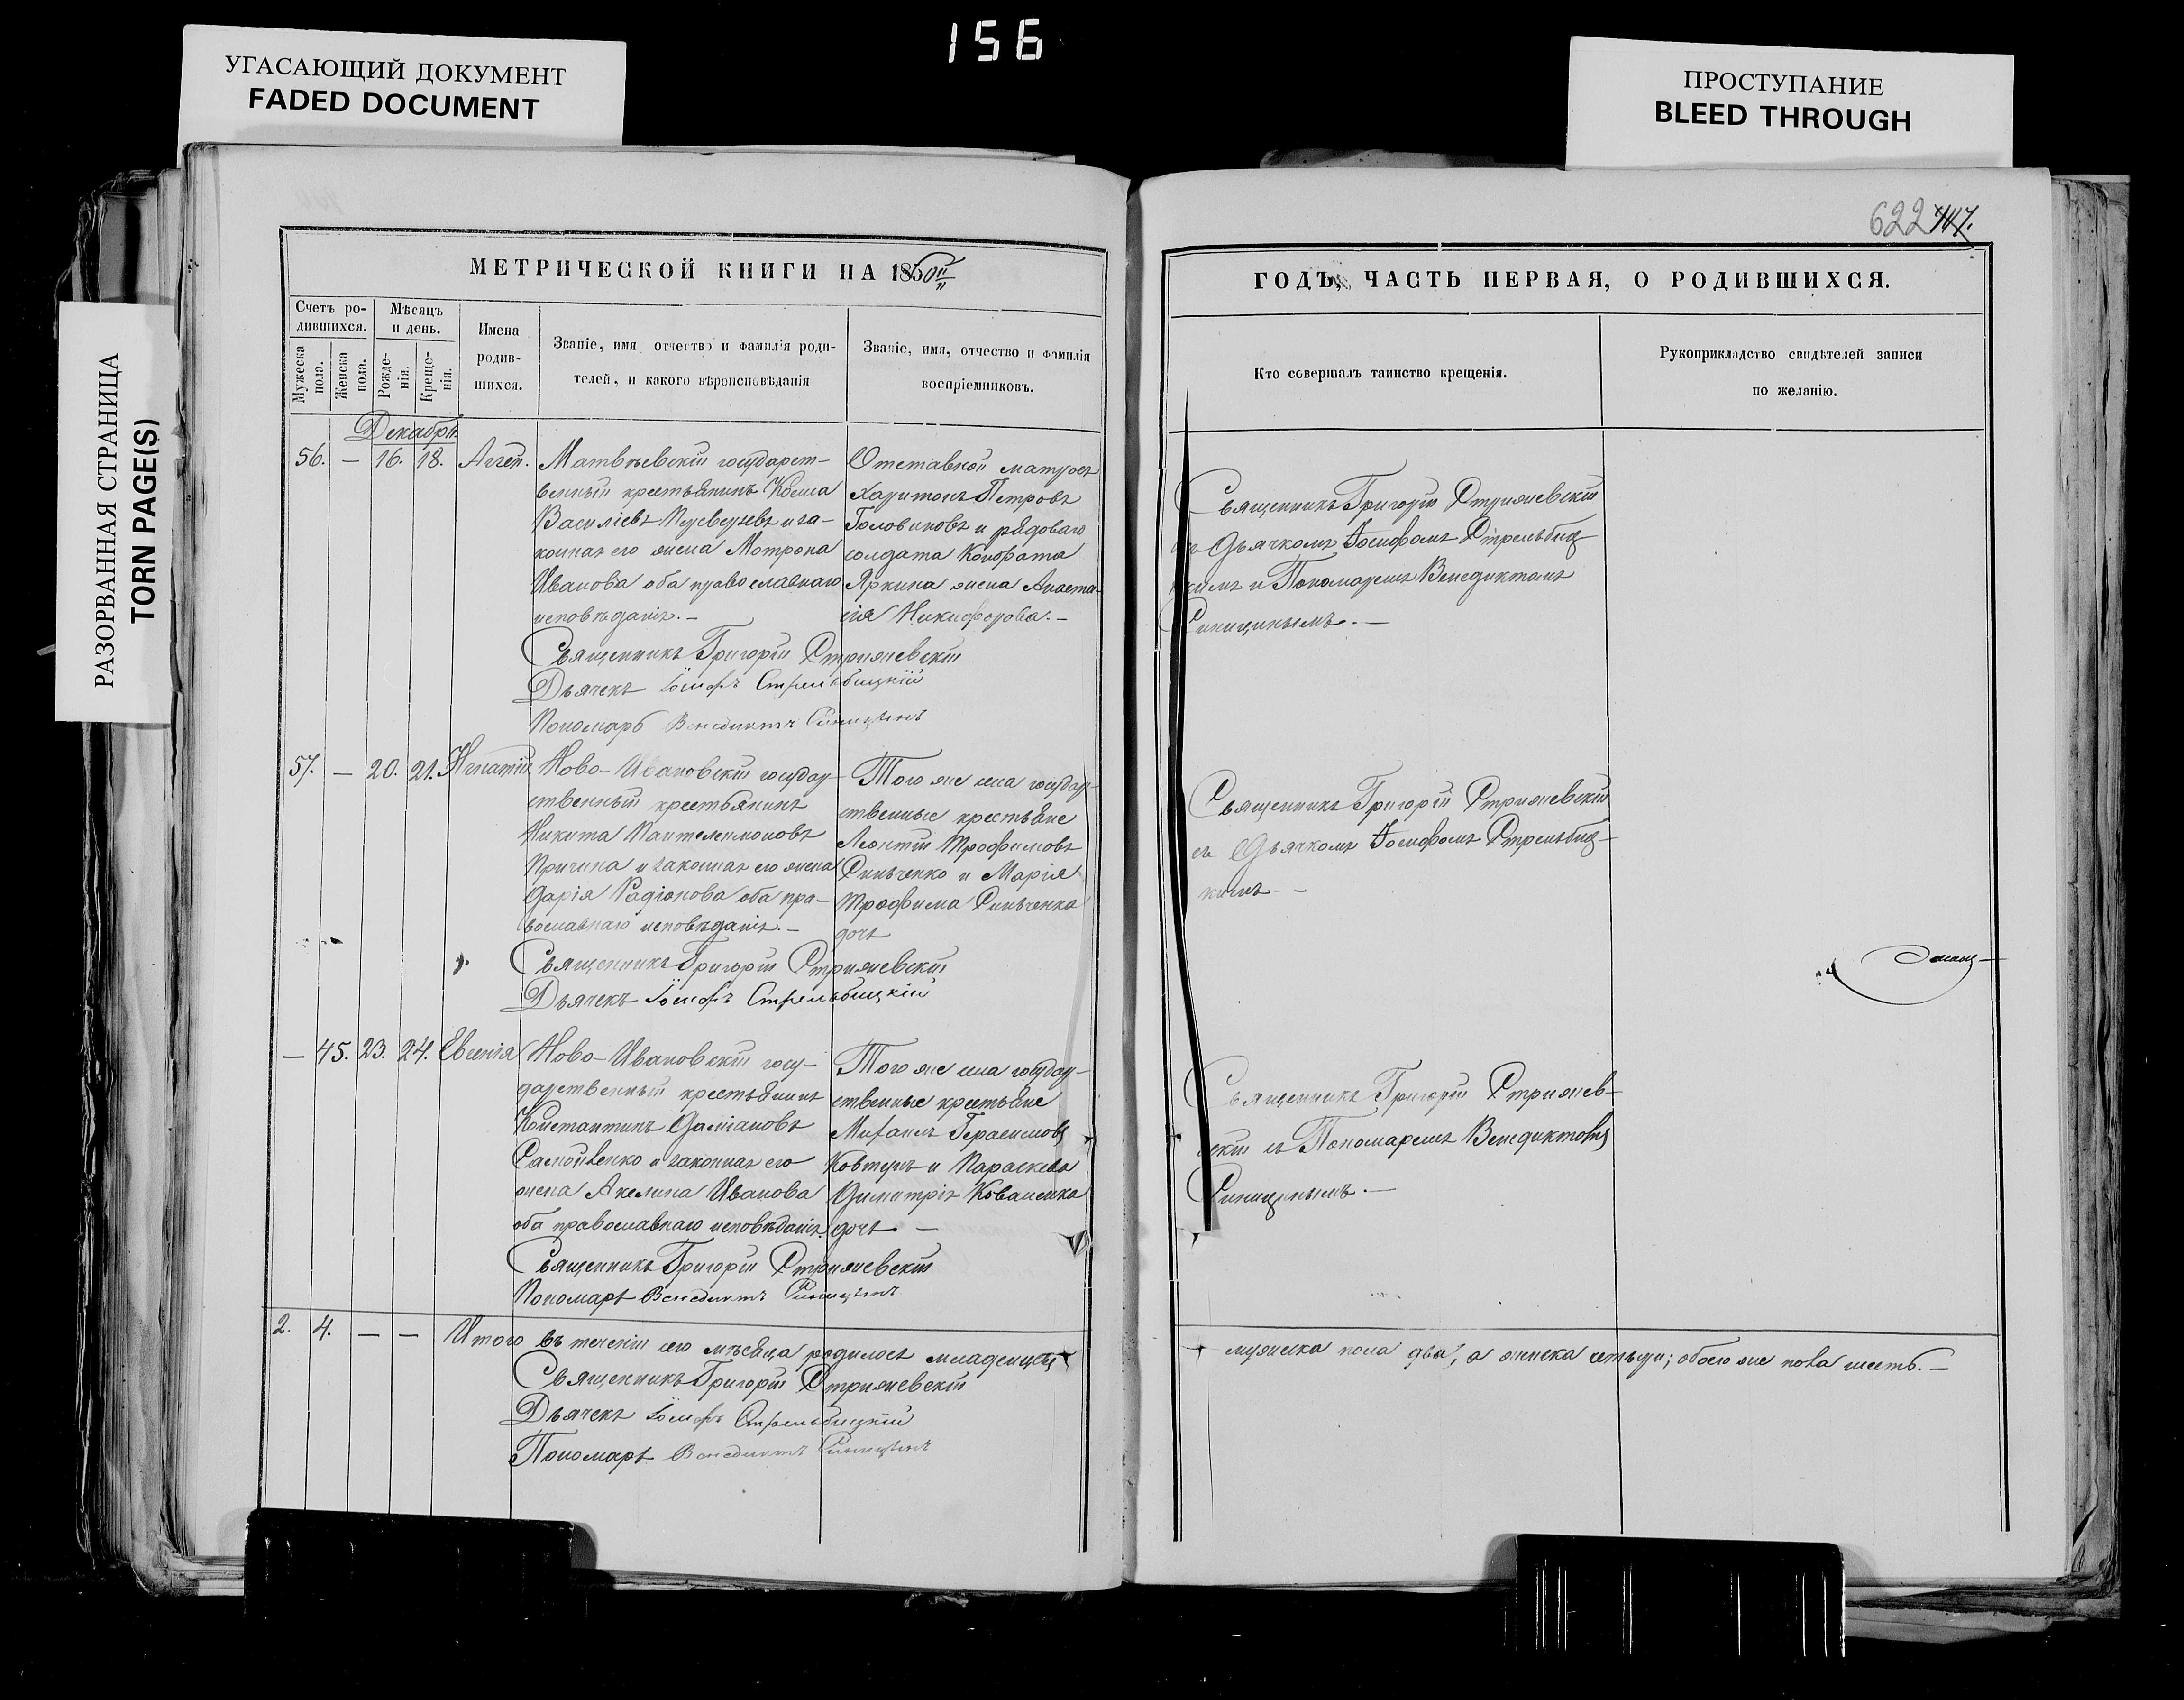 156
УГАСАЮЩИЙ ДОКУМЕНТ
FADED DOCUMENT
ПРОСТУПАНИЕ
BLEED THROUGH
РАЗОРВАННАЯ СТРАНИЦА
TORN PAGE(S)
МЕТРИЧЕСКОЙ КНИГИ НА 1850й
Счетъ родившихся.
Мѣсяцъ и день.
Мужеска пола.
Женска пола.
Рожденія.
Крещенія.
Имена родившихся.
Званіе, имя отчество и фамилія родителей, и какого вѣроисповѣданія
Званіе, имя, отчество и фамилія воспріемниковъ.
Декабрь
56. — 16. 18. Аггей.
Матвѣевскій государст-
венный крестьянинъ Козма
Василіевъ и за-
конная его жена Мотрона
Иванова оба православнаго
исповѣданія. —
Отставной матросъ
Харитонъ Петровъ
Головиновъ и рядоваго
солдата Кондрата
Яркина жена Анаста-
сія Никифорова. —
Священникъ Григорій Стрижевскій
Дьячекъ Іосифъ Стрельбицкій
Пономарь Венедиктъ Синицынъ
57. — 20. 21. Игнатій.
Ново-Ивановскій государ-
ственный крестьянинъ
Никита Пантелеимоновъ
Причина и законная его жена
Дарія Радіонова оба пра-
вославнаго исповѣданія. —
Того же села государ-
ственные крестьяне
Леонтій Трофимовъ
Синьченко и Марія
Трофима Синьченка
дочь
Священникъ Григорій Стрижевскій
Дьячекъ Іосифъ Стрельбицкій
— 45. 23. 24. Евгенія
Ново-Ивановскій госу-
дарственный крестьянинъ
Константинъ Даміановъ
Самойленко и законная его
жена Акелина Иванова
оба православнаго исповѣданія.
Того же села государ-
ственные крестьяне
Михаилъ Герасимовъ
Ковтунъ и Параскева
Димитрія Коваленка
дочь —
Священникъ Григорій Стрижевскій
Пономарь Венедиктъ Синицынъ
2. 4. — — Итого въ теченіи сего мѣсяца родилось младенцевъ
Священникъ Григорій Стрижевскій
Дьячекъ Іосифъ Стрельбицкій
Пономарь Венедиктъ Синицынъ
622
ГОДЪ, ЧАСТЬ ПЕРВАЯ, О РОДИВШИХСЯ.
Кто совершалъ таинство крещенія.
Рукоприкладство свидѣтелей записи
по желанію.
Священникъ Григорій Стрижевскій
съ Дьячкомъ Іосифомъ Стрельбиц-
кимъ и Пономаремъ Венедиктомъ
Синицынымъ. —
Священникъ Григорій Стрижевскій
съ Дьячкомъ Іосифомъ Стрельбиц-
кимъ —
Священникъ Григорій Стрижев-
скій съ Пономаремъ Венедиктомъ
Синицынымъ. —
мужеска пола два, а женска четыре; обоего же пола шесть. —